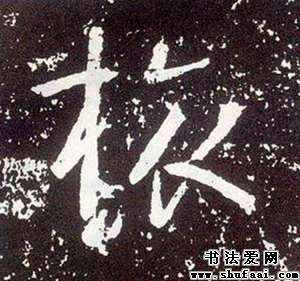 旅
书法爱网
www.shufaai.com